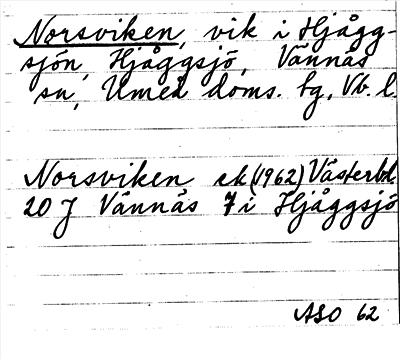 Norsviken, vik i Hjågg-
sjön, Hjåggsjö, Vännäs
sn, Umeå doms. tg, Vb. l.
Norsviken ek (1962) Västerbd
20 J Vännäs 7 i Hjåggsjö
ASO 62